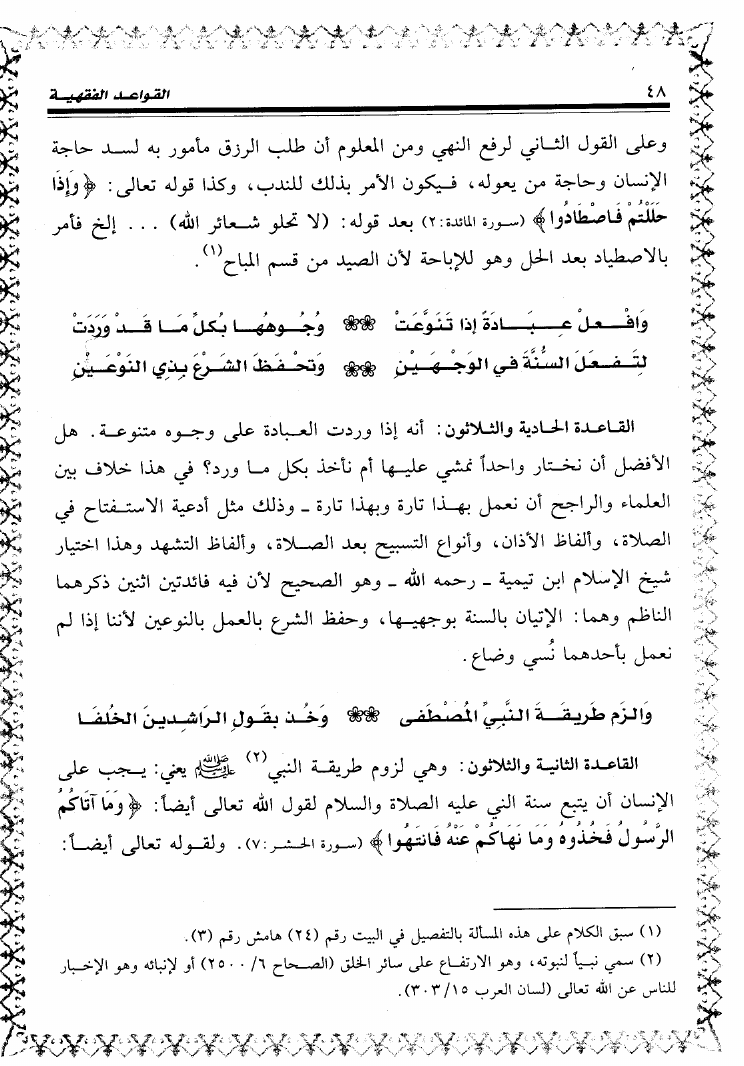 ٤٨ القواعد الفقهية
وعلى القول الثاني لرفع النهي ومن المعلوم أن طلب الرزق مأمور به لسد حاجة
الإنسان وحاجة من يعوله، فيكون الأمر بذلك للندب، وكذا قوله تعالى: ﴿وَإِذَا
حَلَلْتُمْ فَاصْطَادُوا﴾ (سورة المائدة:٢) بعد قوله: (لا تحلو شعائر الله) ... إلخ فأمر
بالاصطياد بعد الحل وهو للإباحة لأن الصيد من قسم المباح(١).
وَافْعلْ عِبَادَةً إذا تَنَوَّعَتْ ❀❀ وُجُوهُهَا بكُلِّ مَا قَدْ وَرَدَتْ
لتَفْعَلَ السُّنَّةَ في الوَجْهَيْنِ ❀❀ وَتَحْفَظَ الشَرْعَ بذي النَوْعَيْنِ
القاعدة الحادية والثلاثون: أنه إذا وردت العبادة على وجوه متنوعة. هل
الأفضل أن نختار واحداً نمشي عليها أم نأخذ بكل ما ورد؟ في هذا خلاف بين
العلماء والراجح أن نعمل بهذا تارة وبهذا تارة ـ وذلك مثل أدعية الاستفتاح في
الصلاة، وألفاظ الأذان، وأنواع التسبيح بعد الصلاة، وألفاظ التشهد وهذا اختيار
شيخ الإسلام ابن تيمية ـ رحمه الله ـ وهو الصحيح لأن فيه فائدتين اثنين ذكرهما
الناظم وهما: الإتيان بالسنة بوجهيها، وحفظ الشرع بالعمل بالنوعين لأننا إذا لم
نعمل بأحدهما نُسي وضاع.
وَالزَم طَريقَةَ النَّبيِّ المُصْطَفى ❀❀ وَخُذ بقَولِ الرَاشدينَ الخُلفَا
القاعدة الثانية والثلاثون: وهي لزوم طريقة النبي(٢) ﷺ يعني: يجب على
الإنسان أن يتبع سنة النبي عليه الصلاة والسلام لقول الله تعالى أيضاً: ﴿وَمَا آتَاكُمُ
الرَّسُولُ فَخُذُوهُ وَمَا نَهَاكُمْ عَنْهُ فَانتَهُوا﴾ (سورة الحشر:٧). ولقوله تعالى أيضاً:
(١) سبق الكلام على هذه المسألة بالتفصيل في البيت رقم (٢٤) هامش رقم (٣).
(٢) سمي نبياً لنبوته، وهو الارتفاع على سائر الخلق (الصحاح ٢٥٠٠/٦) أو لإنبائه وهو الإخبار
للناس عن الله تعالى (لسان العرب ٣٠٣/١٥).